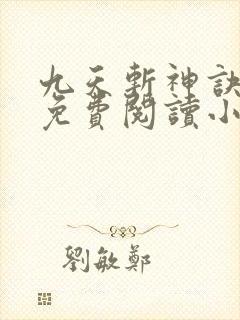 九天斬神訣
免費閱讀小
劉敏鄭